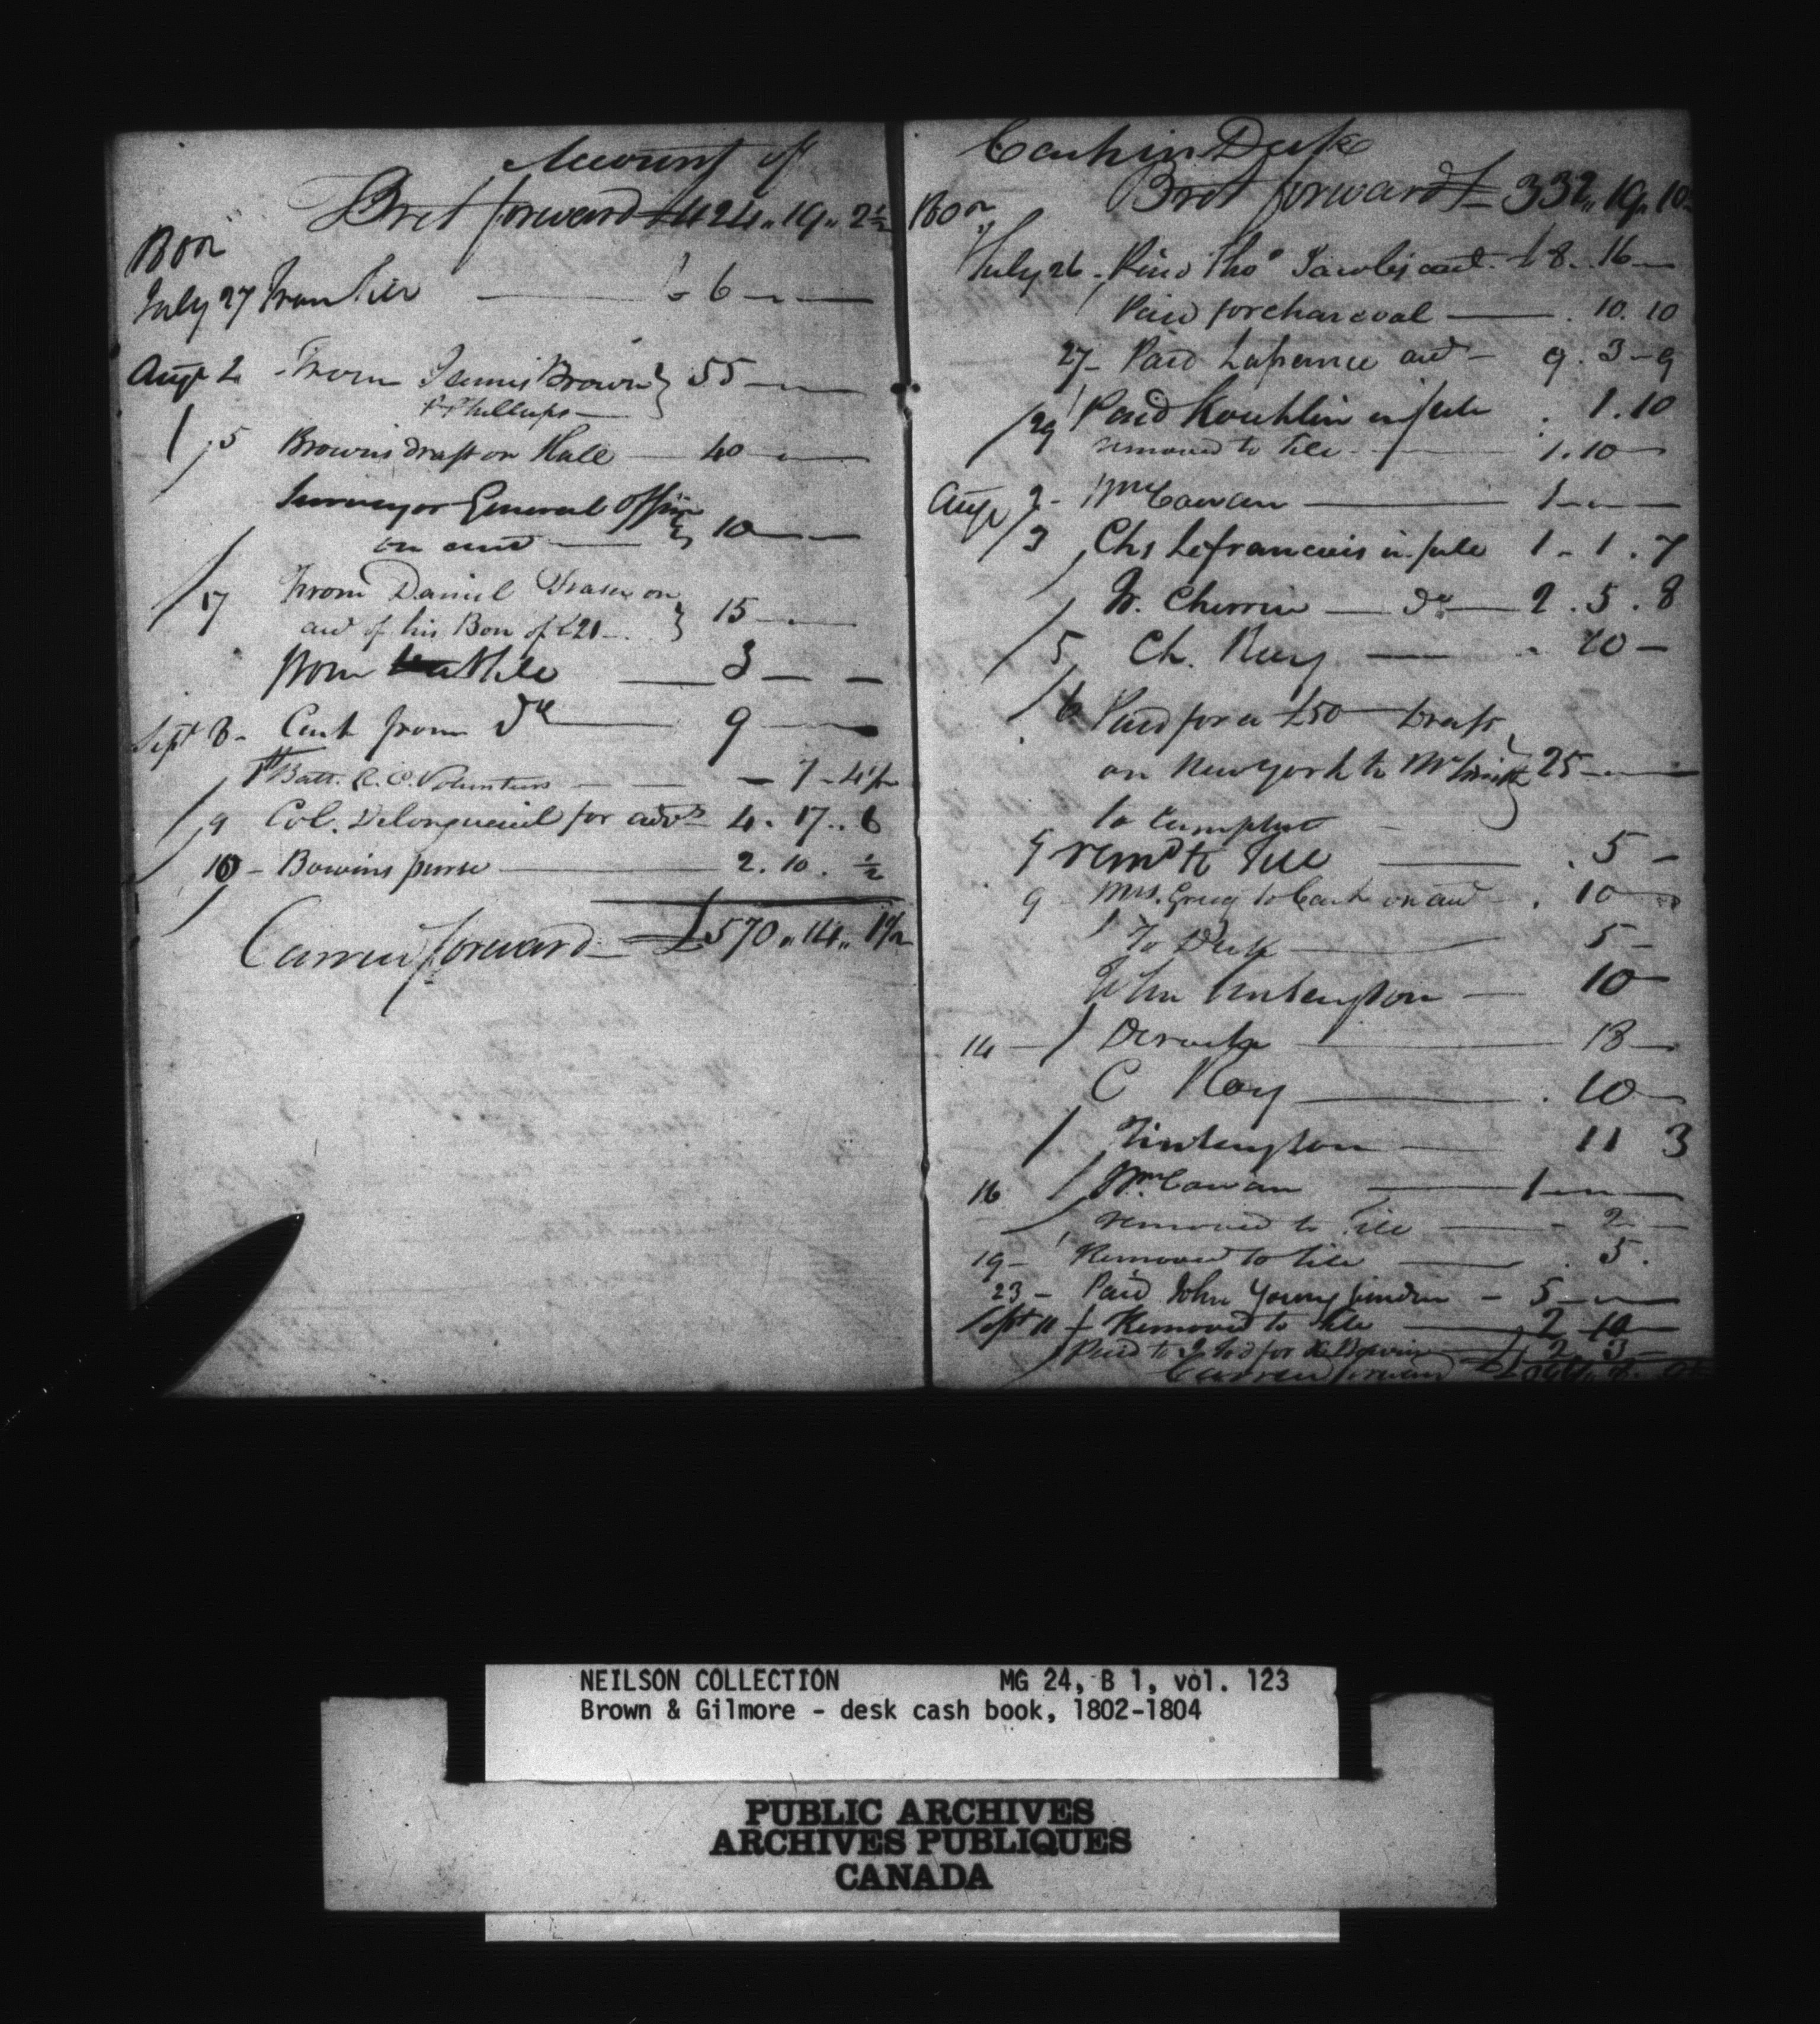 Account of
Brot forward £424 " 19 " 2 1/2
1802
July 27 From Tiler — £ 6 — —
Augt 2 - From James Brown } 55 — —
& Phillips —
5 Browns draft on Hall — 40 — —
Surveyor General Office } 10 — —
on acct —
17 From Daniel Fraser on } 15 — —
acct of his Bon of £21 —
from Tile — 3 — —
Sept 8 - Cash from Do — 9 — —
1st Batt. R. C. Volunteers — — 7 - 4 1/2
9 Col. Delongueuil for advt 4 . 17 . 6
10 - Bowins purse — 2 . 10 . 1/2
Carried forward — £570 " 14 " 1 1/2
Cash in Desk
1802 Brot forward £ 332 " 19 " 10
July 26 - Paid Thos acct. £ 8 . 16 —
Paid for charcoal — . 10 . 10
27 - Paid Lafrance acct — 9 . 3 - 9
29 Paid Kouhlin in full . 1 . 10
removed to tile — 1 . 10 —
Augt 2 - Wm Cowan — 1 — —
3 Chs Lefrancois in full 1 - 1 . 7
W. Cherrin — Do — 2 . 5 . 8
5 Ch. Roy — . 10 —
6 Paid for a £50 — Draft
on New york to Mr Smith } 25 — —
to
9 remd to Tile — . 5 —
9 Mrs. Greig to Cash on acct — . 10 —
To Desk — 5 —
John — 10 —
14 — — 18 —
C Roy — . 10 —
— 11 3
16 Wm Cowan — 1 — —
removed to Tile — - 2 —
19 - Removed to tile — . 5 .
23 - Paid John Young — 5 — —
Sept 11 Removed to tile — 2 - 10 —
Paid to for — 2 3 —
Carried forward £
NEILSON COLLECTION MG 24, B 1, vol. 123
Brown & Gilmore - desk cash book, 1802-1804
PUBLIC ARCHIVES
ARCHIVES PUBLIQUES
CANADA